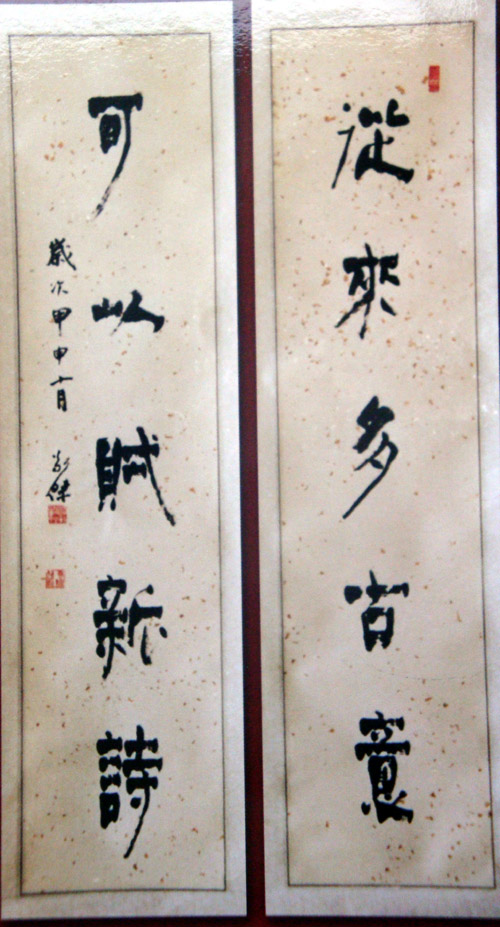 從來多古意
可以賦新詩
歲次甲申十月